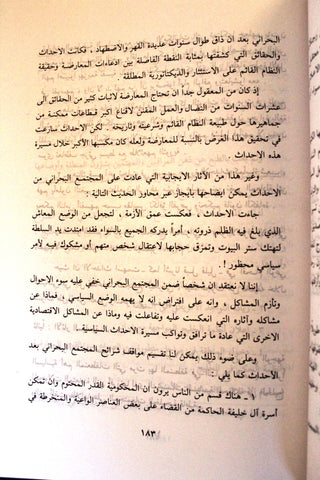 البحراني بعد ان ذاق طوال سنوات عديدة القهر والاضطهاد ، فكانت الاحداث
والحقائق التي كشفتها بمثابة النقطة الفاصلة بين ادعاءات المعارضة وحقيقة
النظام القائم على الاستئثار والديكتاتورية المطلقة .
إذ كان من المعقول جداً ان تحتاج المعارضة لاثبات كثير من الحقائق الى
عشرات السنوات من النضال والعمل المضني لاقناع اكبر قطاعات ممكنة من
جماهيرها حول طبيعة النظام القائم وشرعيته وتاريخه . لكن الاحداث سارعت
في تحقيق هذا الغرض بالنسبة للمعارضة ولعله كان مكسبها الأكبر خلال مسيرة
هذه الاحداث .
وغير هذا من الآثار الايجابية التي عادت على المجتمع البحراني من
الاحداث يمكن ايضاحها بايجاز عبر محاور الحديث التالية :
جاءت الاحداث ، فعكست عمق الأزمة ، لتجعل من الوضع المعاش
الذي بلغ فيه الظلم ذروته ، أمراً يدركه الجميع بالسواء فقد امتدت يد السلطة
لتهتك ستر البيوت وتمزق حجابها لاعتقال شخص متهم أو مشكوك فيه لأمر
سياسي محظور !.
إننا لا نعتقد أن شخصاً ضمن المجتمع البحراني خفي عليه سوء الاحوال
وتأزم المشاكل ، وانه على افتراض إنه لا يهمه الوضع السياسي ، فماذا عن
مشاكله وآثاره التي انعكست عليه وتفاعلت فيه وماذا عن المشاكل الاقتصادية
الاخرى التي عادة ما ترافق وتواكب مسيرة الاحداث السياسية .
وعلى ضوء ذلك يمكن لنا تقسيم مواقف شرائح المجتمع البحراني بعد
الأحداث كما يلي :
١ ـ هناك قسم من الناس يرون أن المحكومية القدر المحتوم وإن تمكن
أسرة آل خليفة الحاكمة من القضاء على بعض العناصر الواعية والمنخرطة في
١٨٣